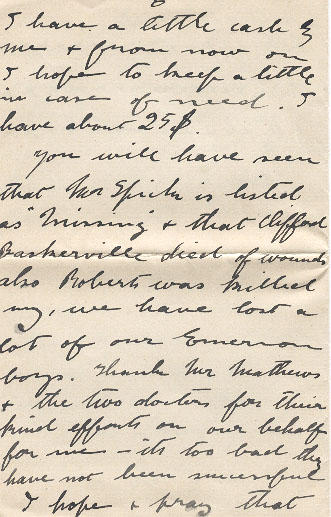 I have a little cash by
me & from now on
I hope to keep a little
in case of need. I
have about 25$.
You will have seen
that Mr is listed
as "Missing" & that Clifford
Baskerville died of wounds
also Roberts was killed
my, we have lost a
lot of our Emerson
boys. Thank Mr Mathews
& the two doctors for their
kind efforts on our behalf
for me - its too bad they
have not been successful
I hope & pray that